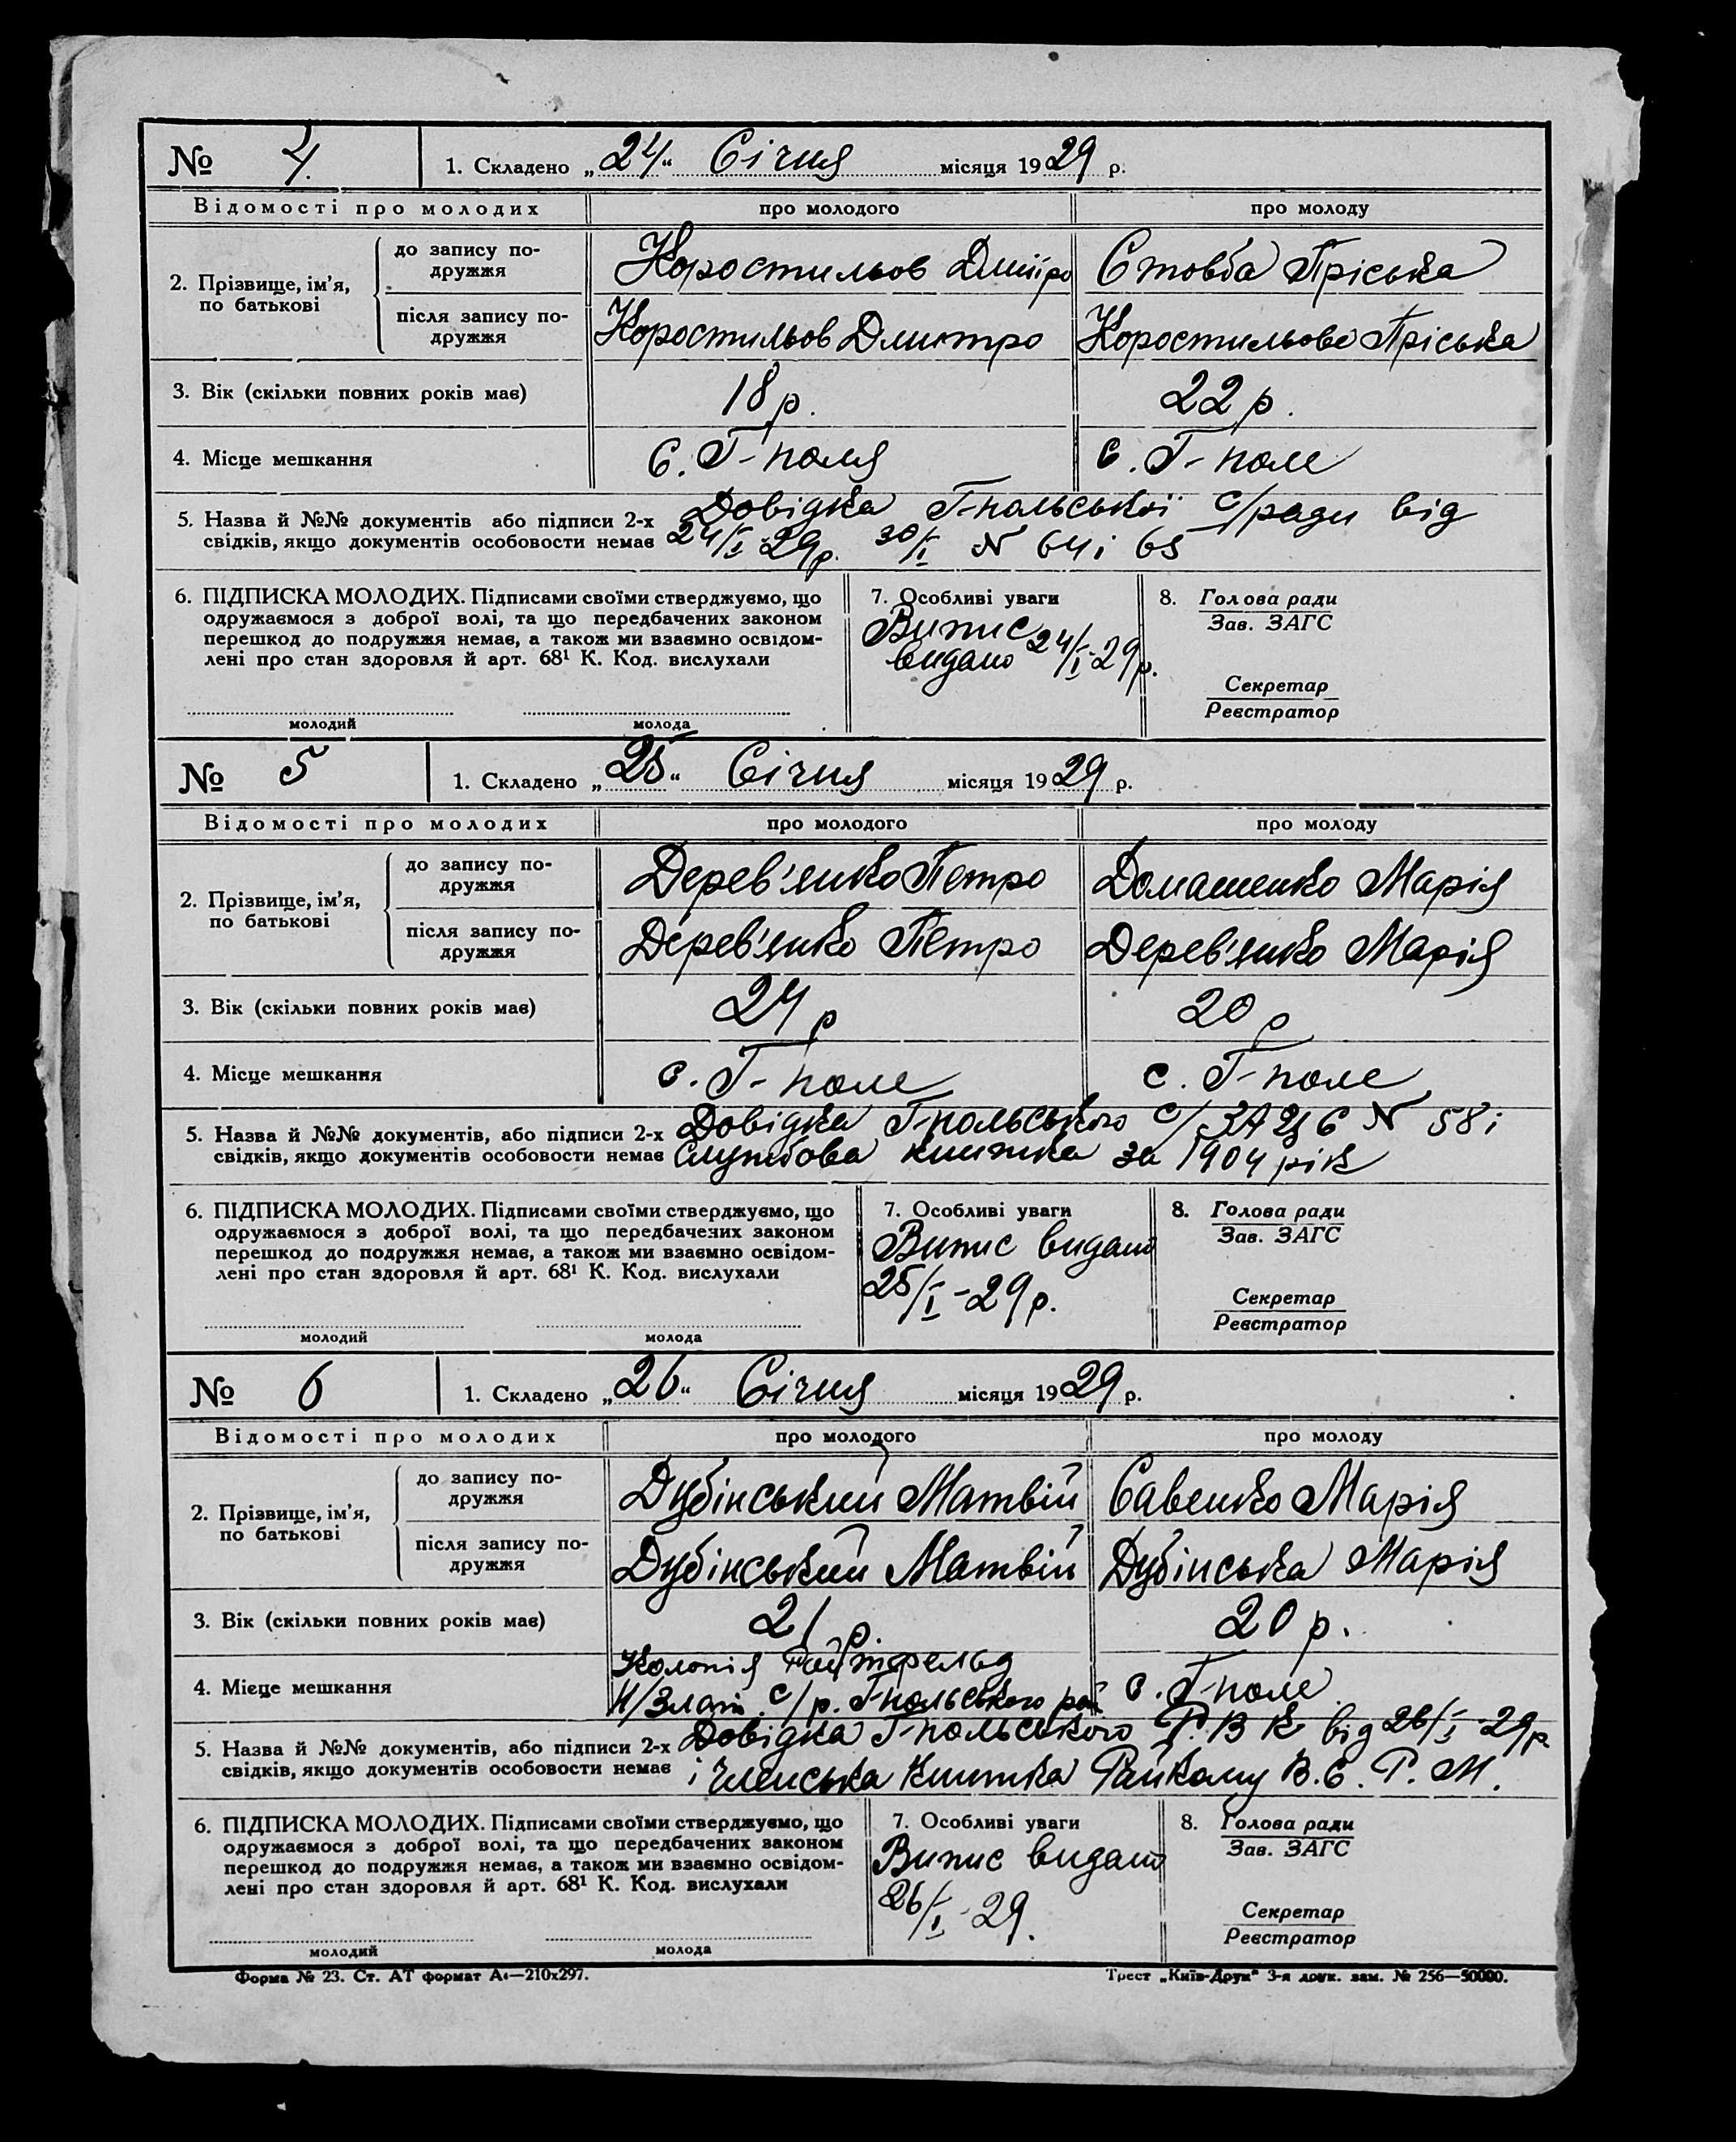 № 4. 1. Складено „24“ Січня місяця 1929 р.
Відомості про молодих про молодого про молоду
2. Прізвище, ім’я, по батькові
до запису подружжя Коростильов Дмитро Стовба Пріська
після запису подружжя Коростильов Дмитро Коростильова Пріська
3. Вік (скільки повних років має) 18 р. 22 р.
4. Місце мешкання с. Г-поля с. Г-поле
5. Назва й №№ документів або підписи 2-х Довідка Г-польської с/ради від
свідків, якщо документів особовости немає 24/I-29р. 30/I N 64 і 65
6. ПІДПИСКА МОЛОДИХ. Підписами своїми стверджуємо, що
одружаємося з доброї волі, та що передбачених законом
перешкод до подружжя немає, а також ми взаємно освідом-
лені про стан здоровля й арт. 68¹ К. Код. вислухали
молодий молода
7. Особливі уваги
Випис
видано 24/I-29р.
8. Голова ради
Зав. ЗАГС
Секретар
Реєстратор
№ 5 1. Складено „25“ Січня місяця 1929 р.
Відомості про молодих про молодого про молоду
2. Прізвище, ім’я, по батькові
до запису подружжя Дерев'янко Петро Домашенко Марія
після запису подружжя Дерев'янко Петро Дерев'янко Марія
3. Вік (скільки повних років має) 24 р 20 р
4. Місце мешкання с. Г-поле с. Г-поле
5. Назва й №№ документів, або підписи 2-х Довідка Г-польського с/ЗАЦС N 58 і
свідків, якщо документів особовости немає Службова книжка за 1904 рік
6. ПІДПИСКА МОЛОДИХ. Підписами своїми стверджуємо, що
одружаємося з доброї волі, та що передбачених законом
перешкод до подружжя немає, а також ми взаємно освідом-
лені про стан здоровля й арт. 68¹ К. Код. вислухали
молодий молода
7. Особливі уваги
Випис видано
25/I-29р.
8. Голова ради
Зав. ЗАГС
Секретар
Реєстратор
№ 6 1. Складено „26“ Січня місяця 1929 р.
Відомості про молодих про молодого про молоду
2. Прізвище, ім’я, по батькові
до запису подружжя Дубінський Матвій Савенко Марія
після запису подружжя Дубінський Матвій Дубінська Марія
3. Вік (скільки повних років має) 21 р. 20 р.
4. Місце мешкання Колонія
Н/Злат. с/р. Г-польського рай с. Г-поле
5. Назва й №№ документів, або підписи 2-х Довідка Г-польського Р.В К від 26/I-29р.
свідків, якщо документів особовости немає і членська книжка Райкому В.С.Р.М.
6. ПІДПИСКА МОЛОДИХ. Підписами своїми стверджуємо, що
одружаємося з доброї волі, та що передбачених законом
перешкод до подружжя немає, а також ми взаємно освідом-
лені про стан здоровля й арт. 68¹ К. Код. вислухали
молодий молода
7. Особливі уваги
Випис видано
26/I-29.
8. Голова ради
Зав. ЗАГС
Секретар
Реєстратор
Форма № 23. Ст. АТ формат А₄—210х297. Трест „Київ-Друк“ 3-я друк. зам. № 256—50000.